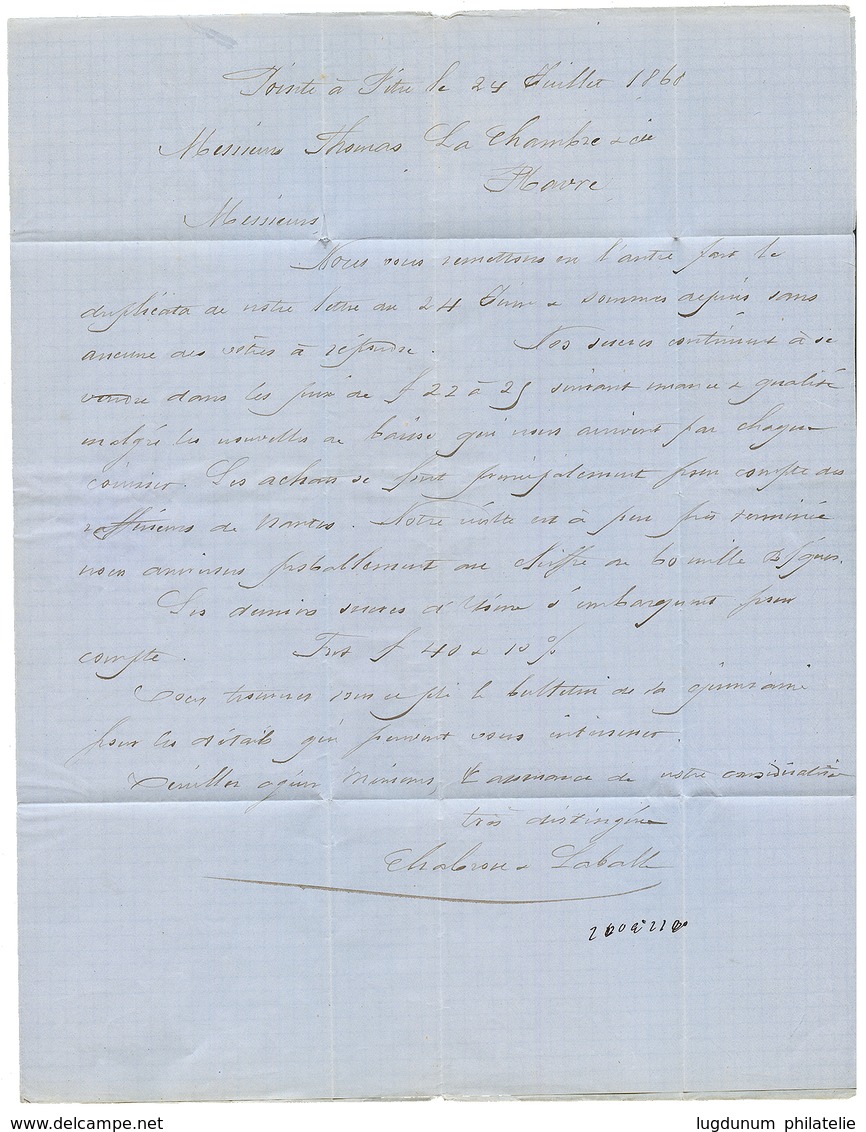 Pointe à Pitre le 24 Juillet 1860
Messieurs Thomas La Chambre & Cie
Havre
Messieurs
Nous vous remettons en l'autre part le
duplicata de notre lettre du 24 Juin & sommes depuis sans
aucune des vôtres à répondre. Nos sucres continuent à se
vendre dans les prix de f 22 à 25 suivant nuance & qualité
malgré les nouvelles de baisse qui nous arrivent par chaque
courrier. Les achats se font principalement pour compte des
raffineurs de Nantes. Notre récolte est à peu près terminée
nous arriverons probablement au chiffre de 60 mille
Les derniers sucres d'Usine s'embarquent pour
compte. Fret f 40 & 10 %
Vous trouverez sous ce pli le bulletin de la quinzaine
pour les détails qui peuvent vous intéresser.
Veuillez agréer Messieurs l'assurance de notre considération
très distinguée
& Labatte
www.delcampe.net
lugdunum philatelie